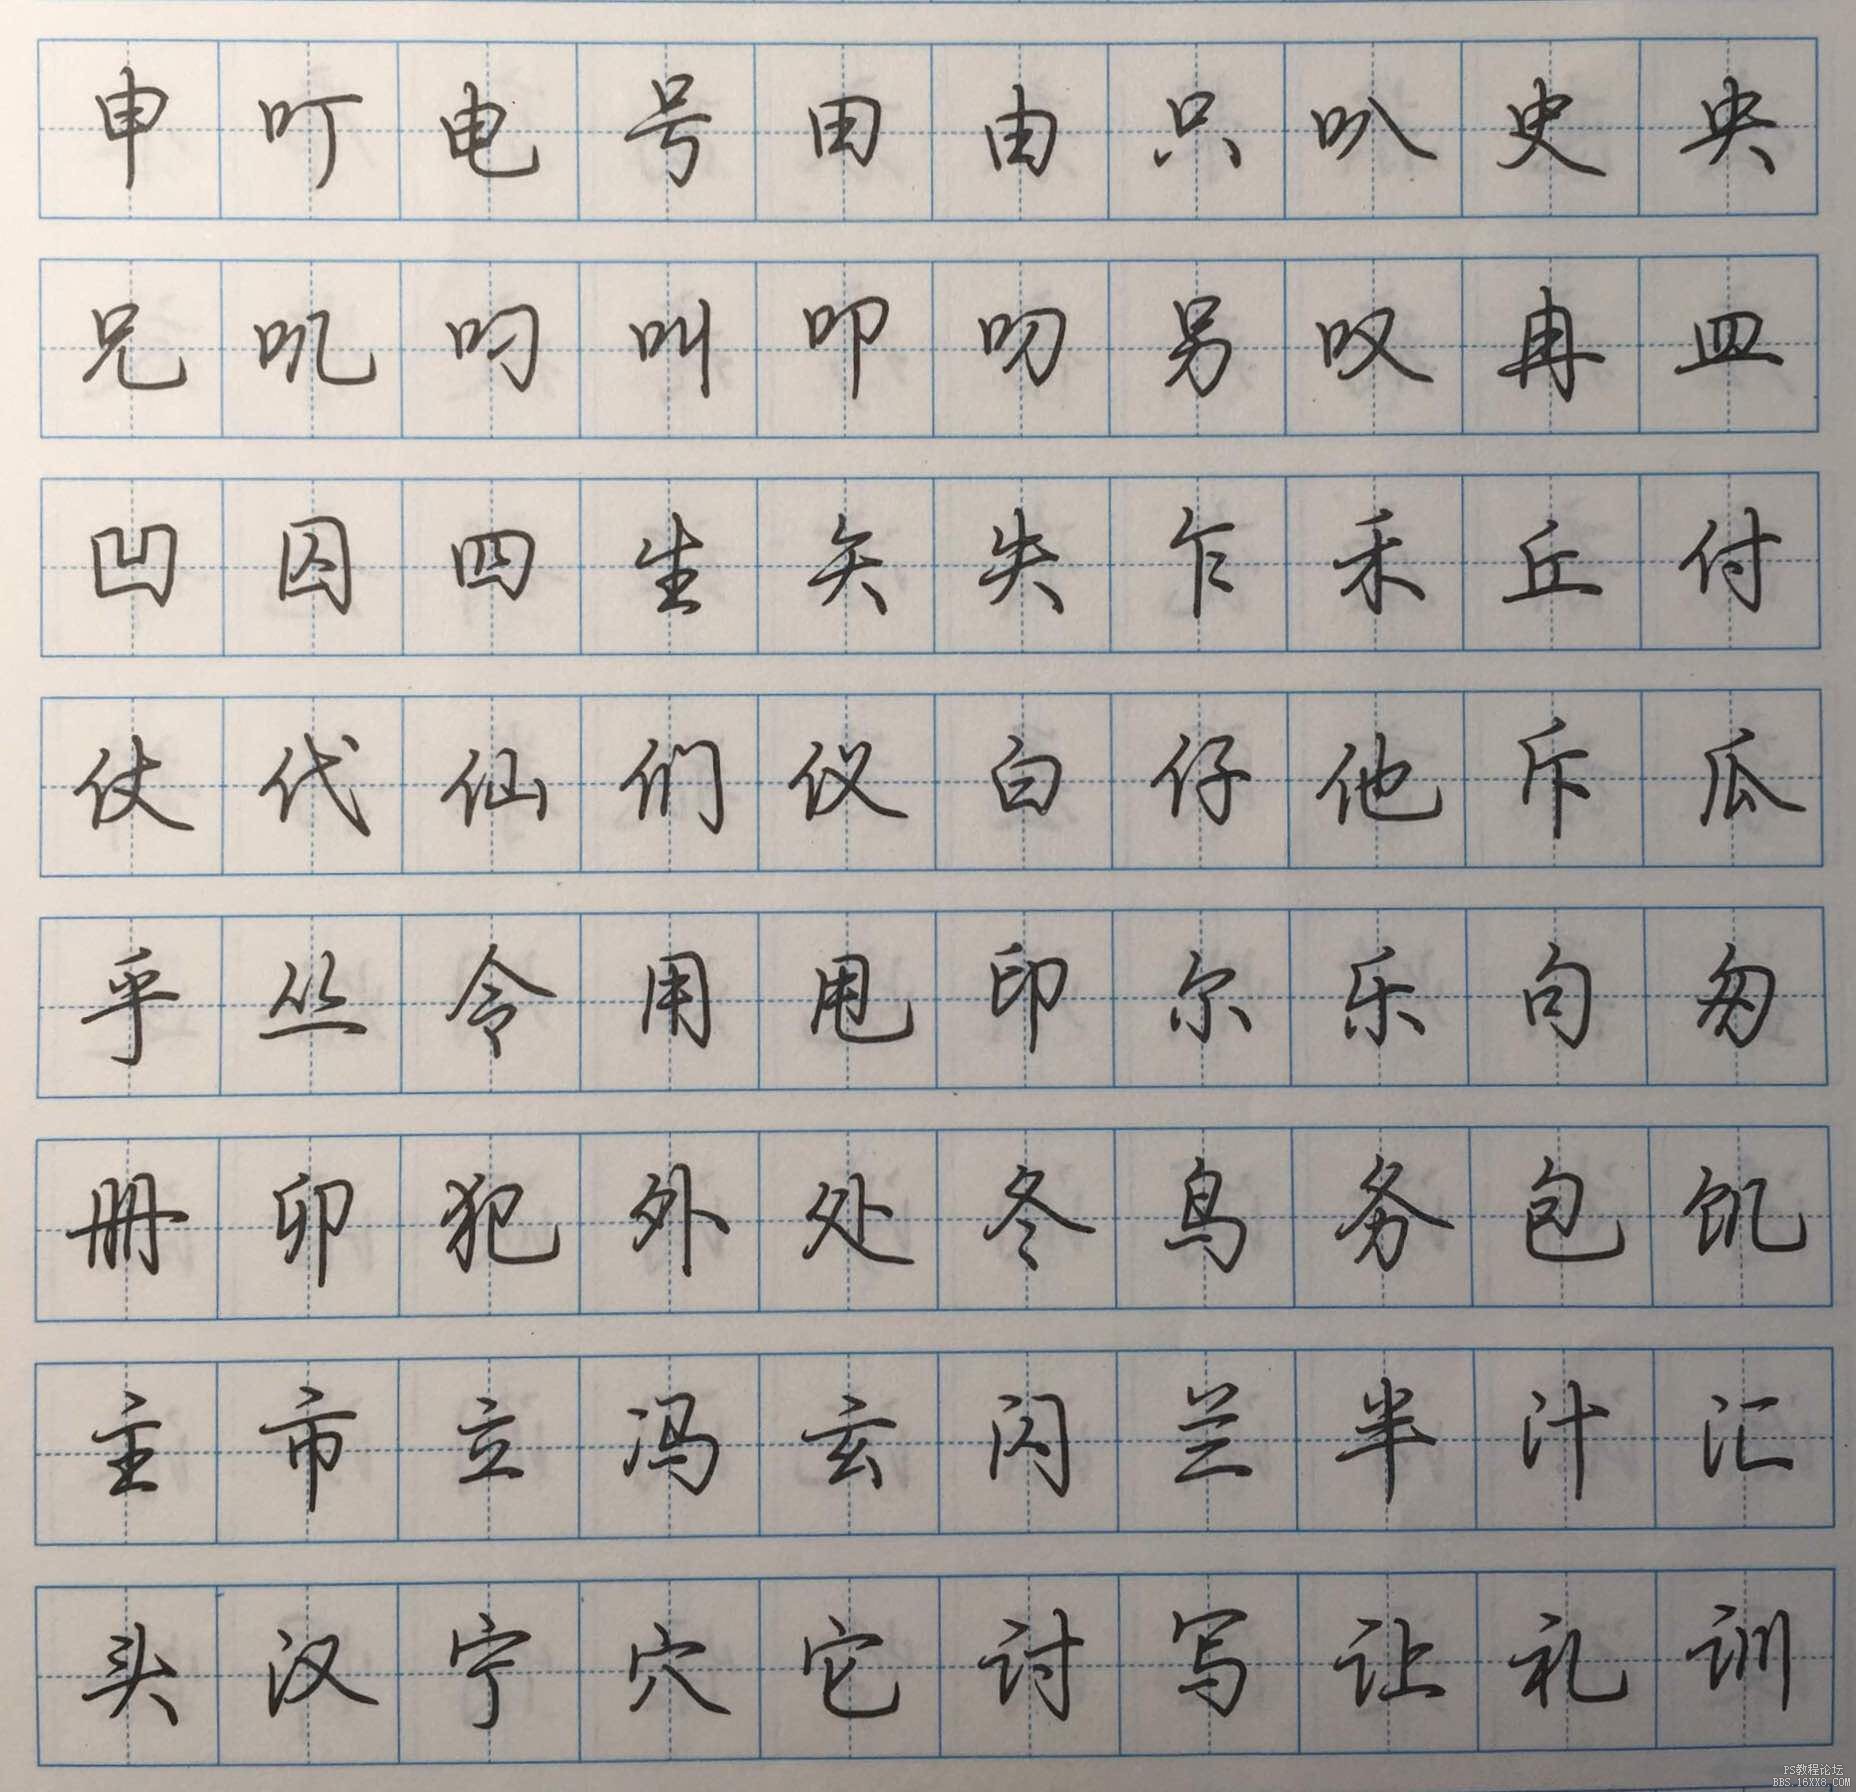 申叮电号田由只叭史央
兄叽吲叫叩叨另叹冉皿
凹囚四生矢失乍禾丘付
仗代仙们仪白仔他斥瓜
乎丛令用甩印尔乐句匆
册卯犯外处冬鸟务包饥
主市立冯玄闪兰半汁汇
头汉宁穴它讨写让礼训
PS教程论坛
BBS.16XX8.COM